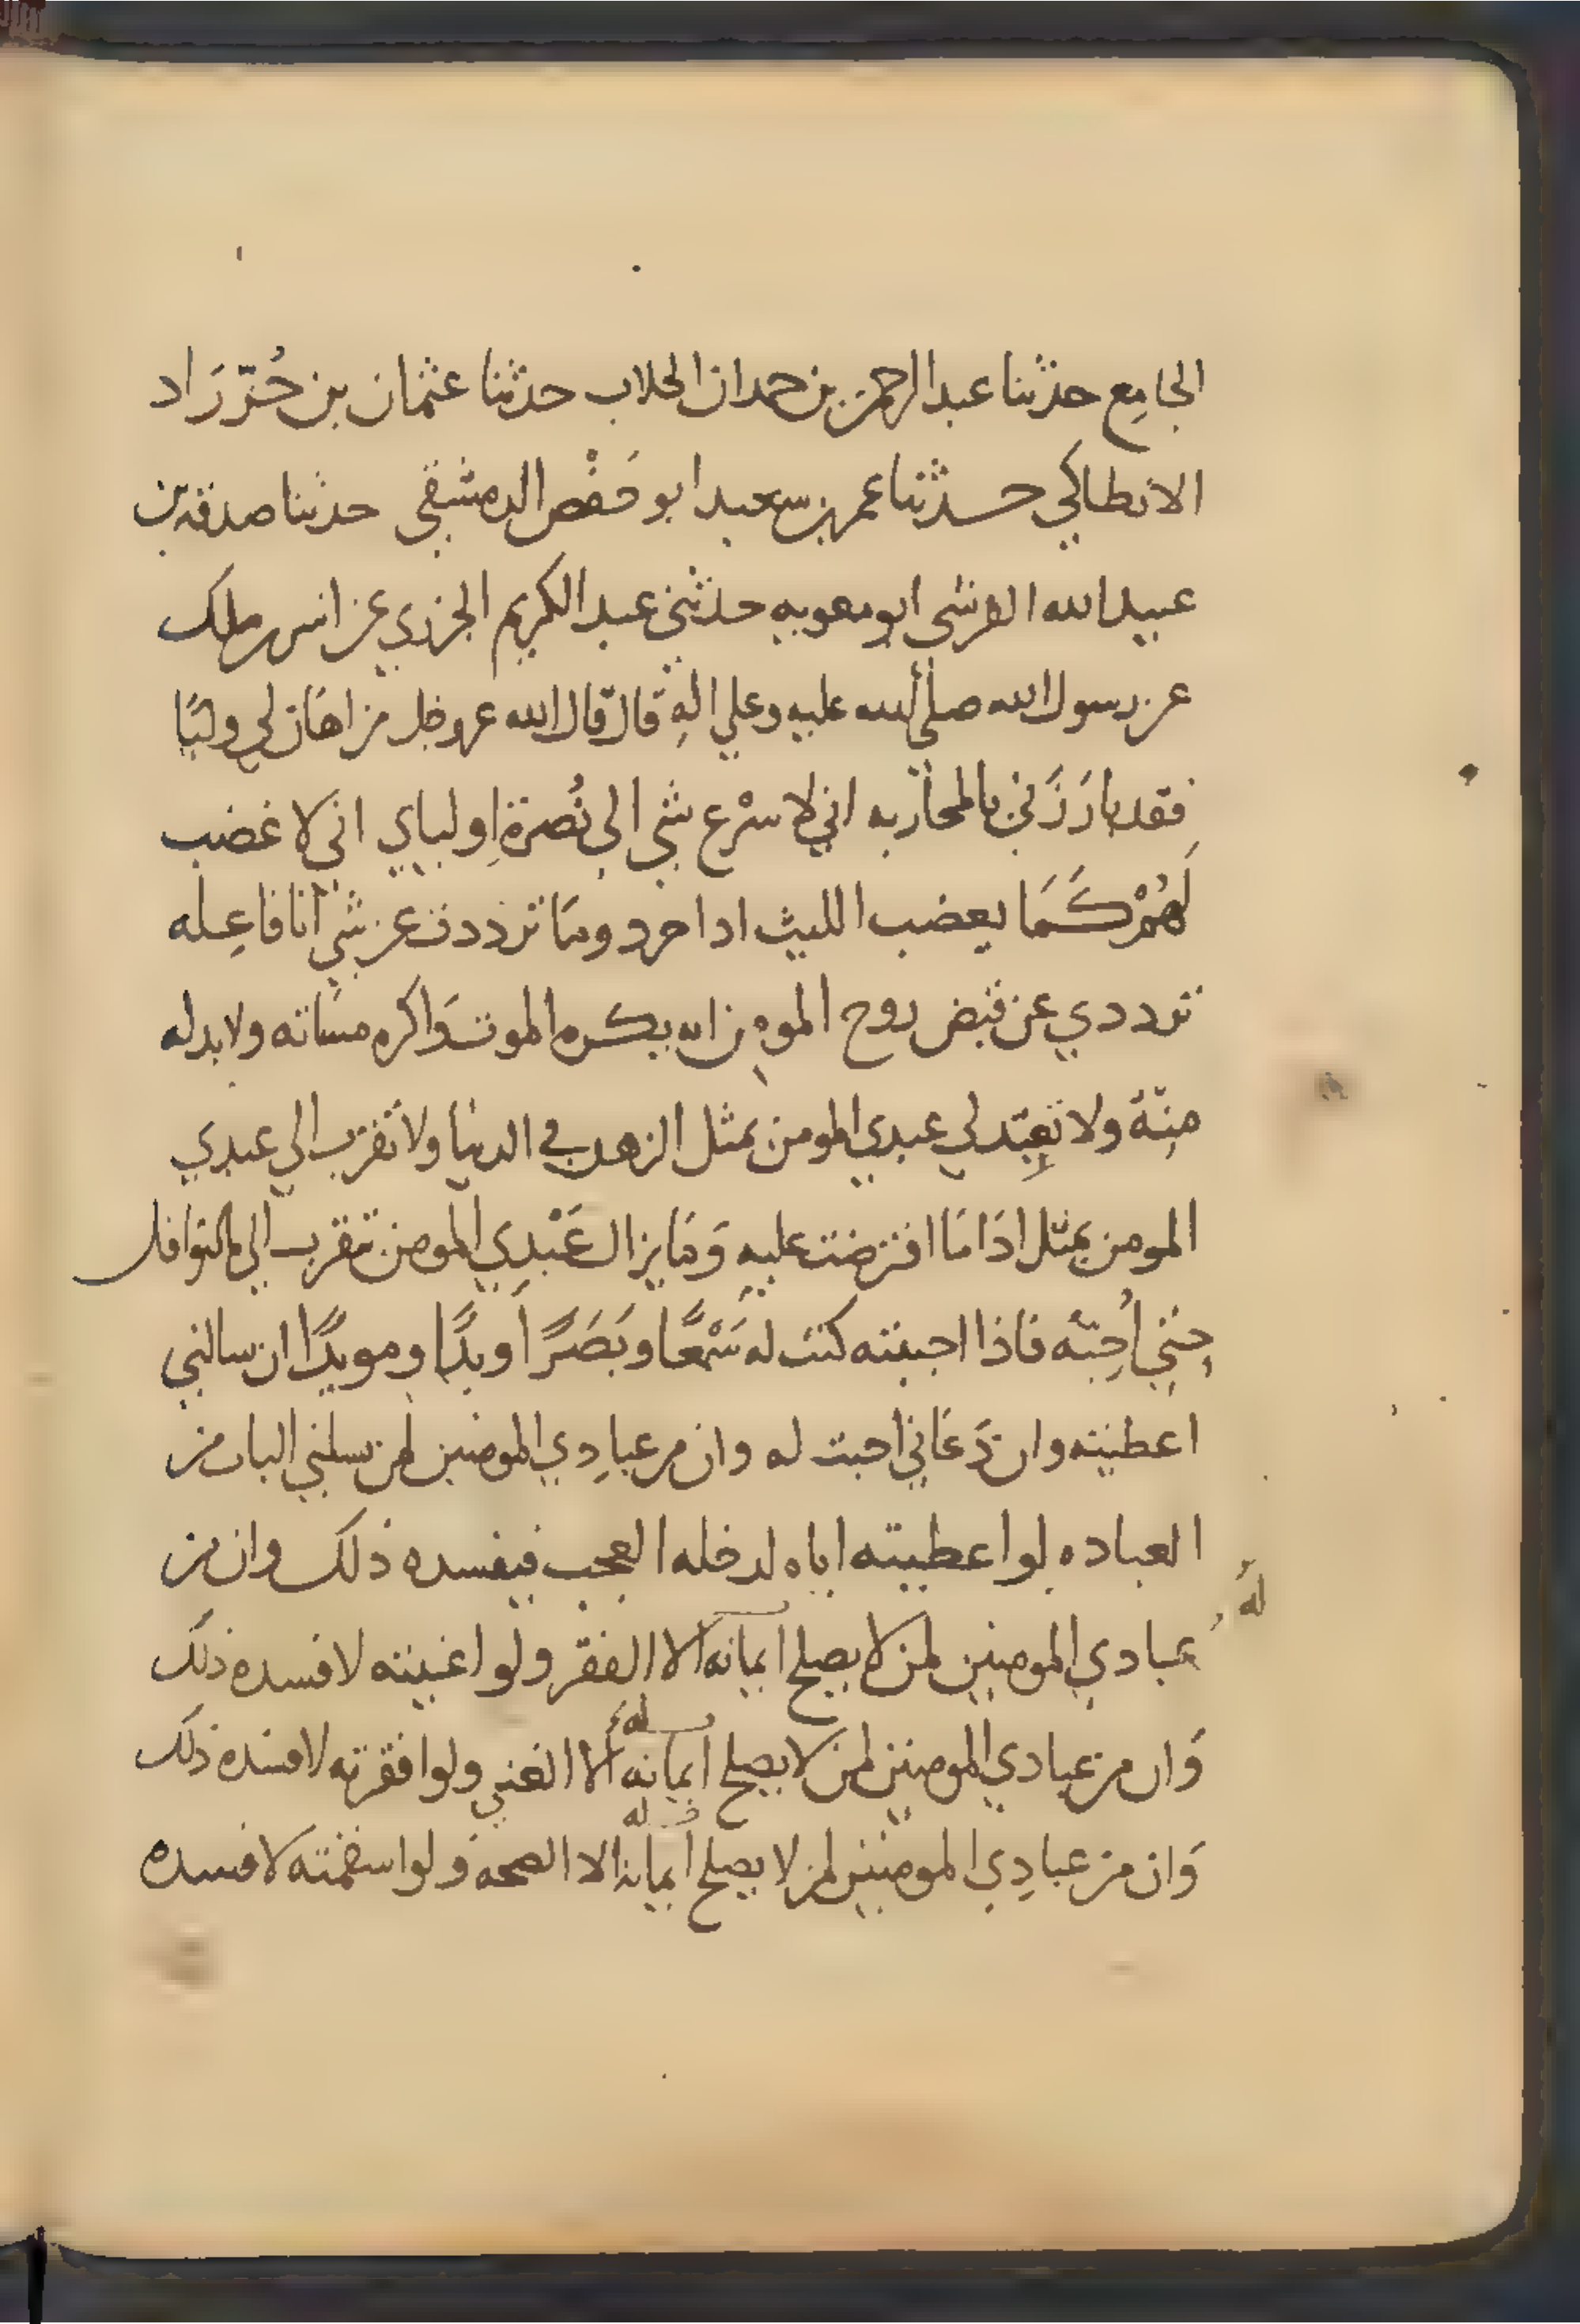 الجامع حدثنا عبد الرحمن بن حمدان الجلاب حدثنا عثمان بن خُرّزَاد
الانطاكي حدثنا عمر بن سعيد ابو حَفْص الدمشقي حدثنا صدقة بن
عبيد الله القرشي ابو معويه حدثني عبد الكريم الجزري عن انس بن ملك
عن رسول الله صلى الله عليه وعلي الهِ قال قال الله عز وجل من اهَان لي وليًا
فقد بارَزَني بالمحاربه اني لاسْرع شي الى نُصرة اوليايي اني لاغضب
لَهُمْ كَمَا يغضب الليث اذا حرد ومَا ترددت عن شي أنا فاعِله
ترددي عن قبض روح المومن انه يكره الموت وَاكره مسَاته ولا بد له
مِنهُ ولا تَعبّد لي عبدي المومن بمثل الزهد في الدنيا ولا تقرب الي عبدي
المومن بمثل ادَا مَا افترضت عليهِ وَمَا يزال عَبْدِي المومن يتقرب الي بالنوافل
حتي اُحِبّه فاذا احببته كنت له سَمْعًا وبَصَرًا ويدًا ومويدًا ان سالني
اعطيته وان دَعَاني اجبت له وان من عبادِي المومنين لمن يسلني الباب من
العباده لو اعطيته اياه لدخله العجب فيفسده ذلك وان من
عبادي المومنين لمن لا يصلح ايمانه الا الفقر ولو اغنيته لافسده ذلك
له
وَان من عبادي المومنين لمن لا يصلح ايمانه الا الغني ولو افقرته لافسده ذلك
له
وَان من عبادِي المومنين لمن لا يصلح ايمانه الا الصحه ولو اسقمته لافسده
له